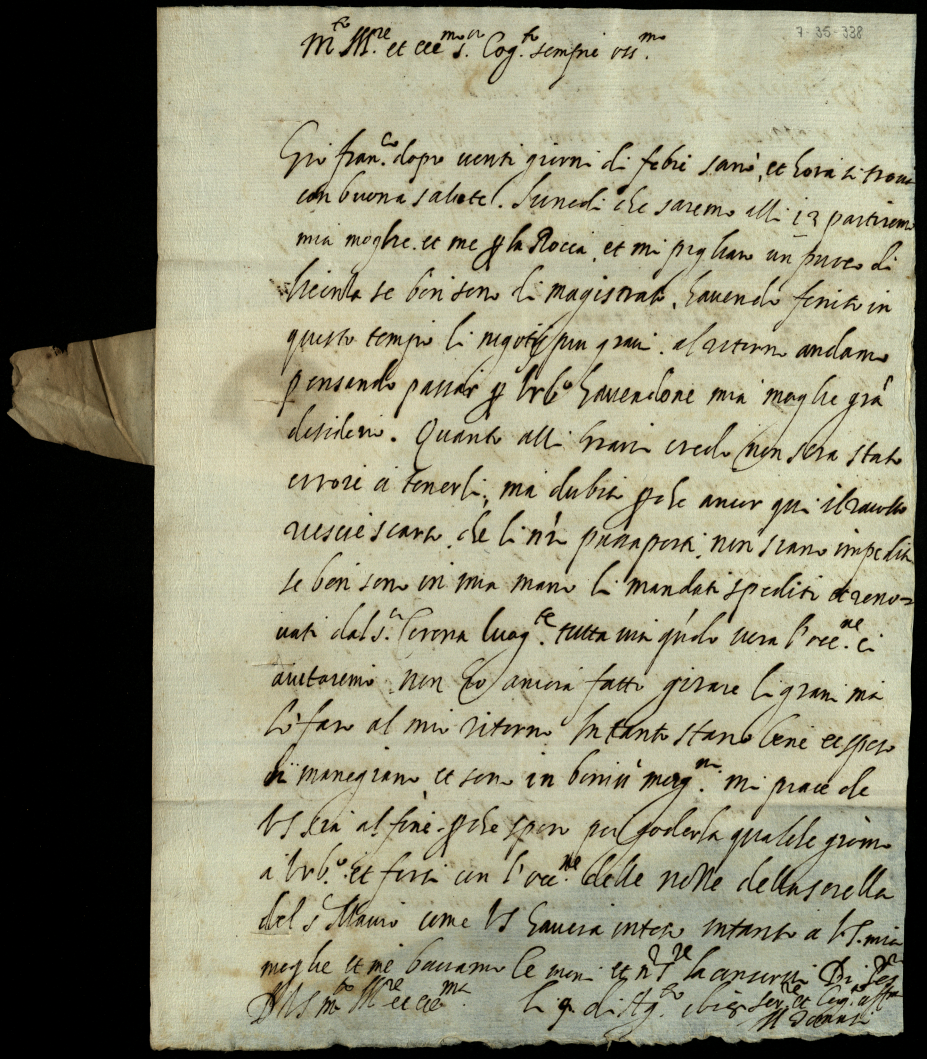 7-35-338
m.to Ill.re et ecc.mo s.r Cog.to sempre oss.mo
Gio fran.co dopo venti giorni di febre sanò, et hora si trova
con buona salute. Lunedi che saremo alli 12 partiremo
mia moglie et me p la Rocca, et mi pigliarò un puoco di
licenza se ben sono di magistrato, havendo finito in
questo tempo li negotij piu gravi. al ritorno andamo
pensando passar p Urb.o havendone mia moglie grã
desiderio. Quanto alli grani credo non sera stato
errore a tenerli, ma dubito p che ancor qui il racolto
riescie scarso, che li nr̃i passaporti non siano impediti
se ben sono in mia mano li mandati spediti et reno=
vati dal s.r luog.te tutta via qñdo vera l'occ.ne ci
aiutaremo non ho ancora fatto girare li grani ma
lo farò al mio ritorno Intanto stano bene et spesso
si manegiano et sono in boniss.o mi piace che
VS sia al fine p che spero poi goderla qualche giorno
a Urb.o et forsi con l'occ.ne delle nozze della sorella
del s.r Mauro come VS haverà inteso intanto a VS. mia
moglie et me basciamo le mani et n.ro S.re la conservi Di
D VS m.to Ill.re et ecc.ma li 9 di Ag.to Ser.re et Cog.to aff.mo